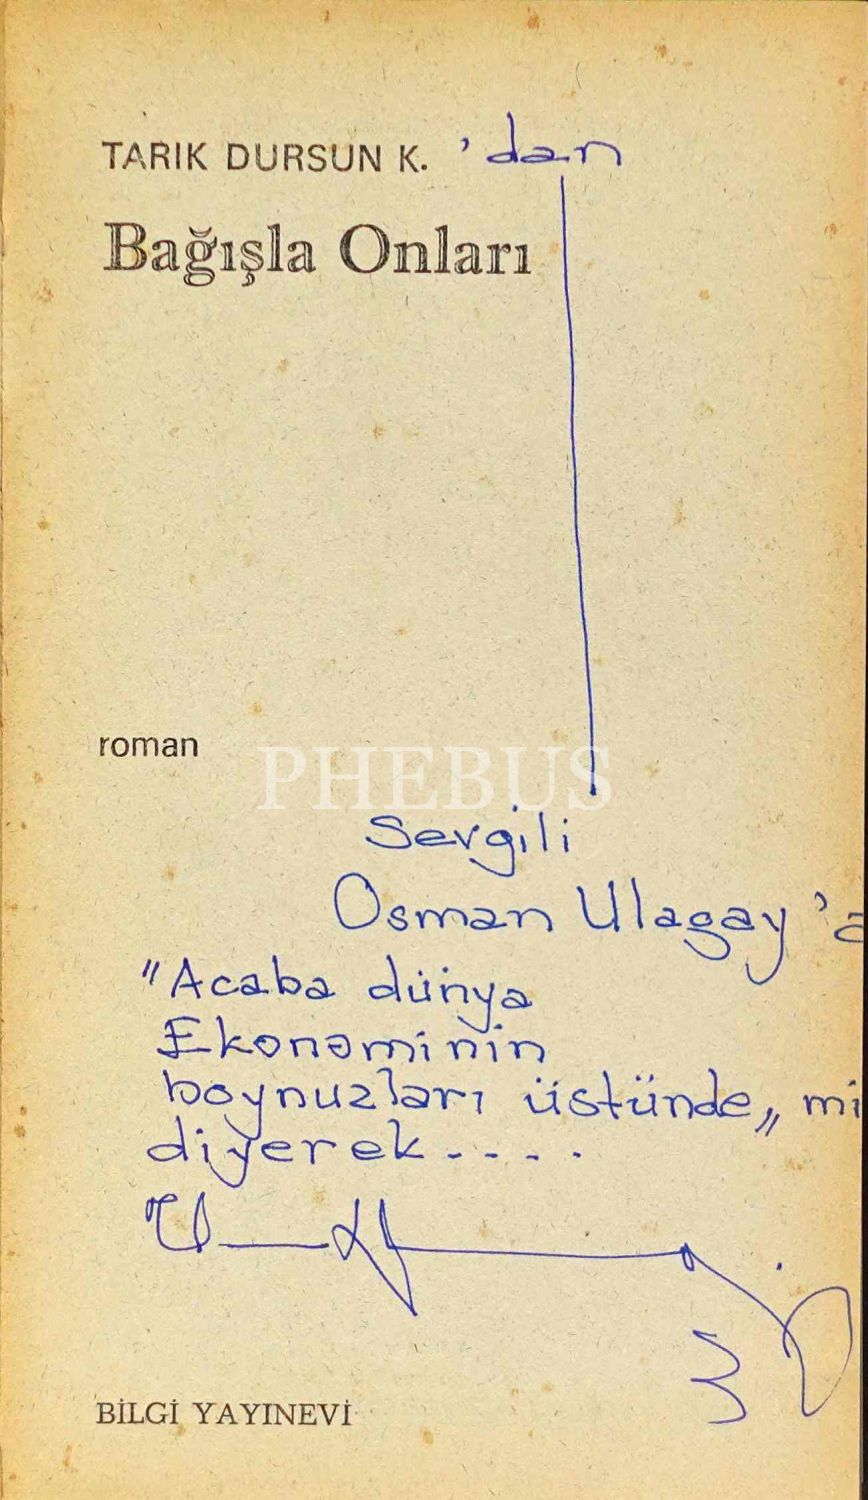 TARIK DURSUN K. 'dan
Bağışla Onları
roman
PHEBUS
Sevgili
Osman Ulagay 'a
"Acaba dünya
Ekonominin
boynuzları üstünde,, mi
diyerek - - - .
BİLGİ YAYINEVİ